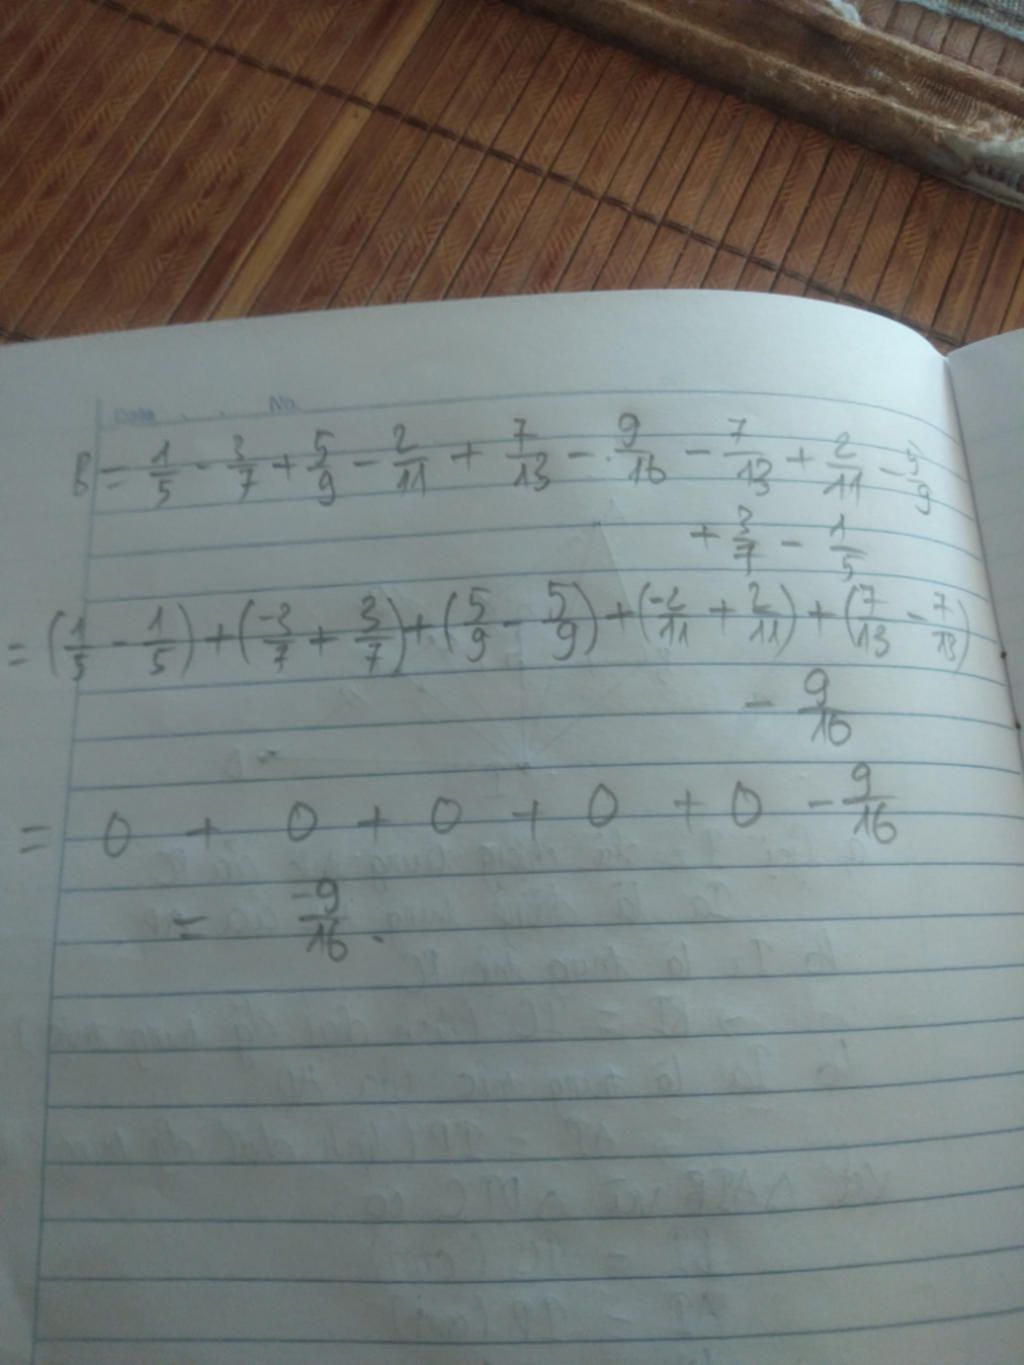 Date . . No.
B = 1/5 - 3/7 + 5/9 - 2/11 + 7/13 - 9/16 - 7/13 + 2/11 - 5/9
+ 3/7 - 1/5
= (1/5 - 1/5) + (-3/7 + 3/7) + (5/9 - 5/9) + (-2/11 + 2/11) + (7/13 - 7/13)
- 9/16
= 0 + 0 + 0 + 0 + 0 - 9/16
= -9/16.